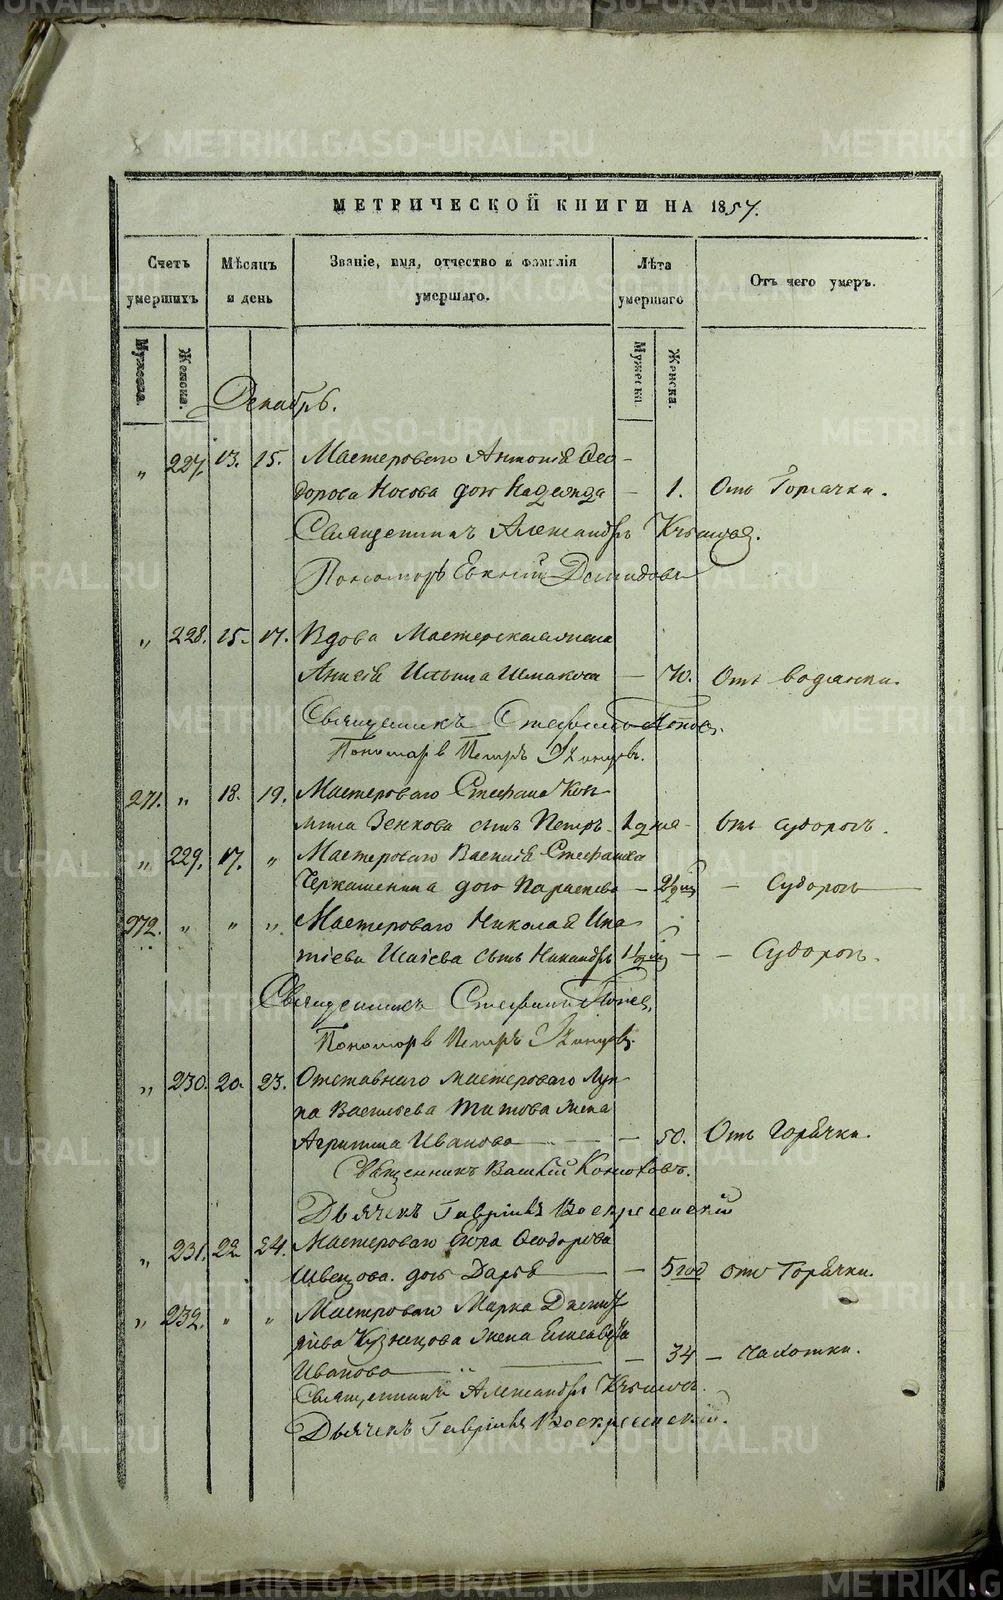 METRIKI.GASO-URAL.RU
МЕТРИЧЕСКОЙ КНИГИ НА 1857.
Счетъ умершихъ
Мѣсяцъ и день
Званіе, имя, отчество и фамилія умершаго.
Лѣта умершаго
Отъ чего умеръ.
Мужеска.
Женска.
Мужеска.
Женска.
Декабрь.
" 227. 13. 15. Мастероваго Антонія Ѳео-
дорова Носова дочь Надежда — 1. Отъ Горячки.
Священникъ Александръ
Пономарь Демидовъ
" 228. 15. 17. Вдова Мастерская жена
Ильина Шмакова — 70. Отъ водянки.
Священникъ Стефанъ Поповъ.
Пономарь Петръ
271. " 18. 19. Мастероваго Стефана Кон-
Зенкова сынъ Петръ дня Отъ судорогъ.
" 229. 17. " Мастероваго Василія Стефанова
Черкашенина дочь Параскева — — Судорогъ
272. " " " Мастероваго Николая Ипа-
тіева Исаева сынъ Никандръ — — Судорогъ.
Священникъ Стефанъ Поповъ.
Пономарь Петръ
" 230. 20. 23. Отставнаго мастероваго Луп-
па Васильева Титова жена
Агрипина Иванова — 50. Отъ Горячки.
Священникъ Василій Конюховъ.
Дьячекъ Гавріилъ Воскресенскій
" 231. 22 24. Мастероваго Ѳеодорова
Швецова. дочь Дарья — 5 год отъ Горячки.
" 232. " " Мастероваго Марка Дмит-
ріева Кузнецова жена Елисавета
Иванова — 34 — Чахотки.
Священникъ Александръ
Дьячекъ Гавріилъ Воскресенскій.